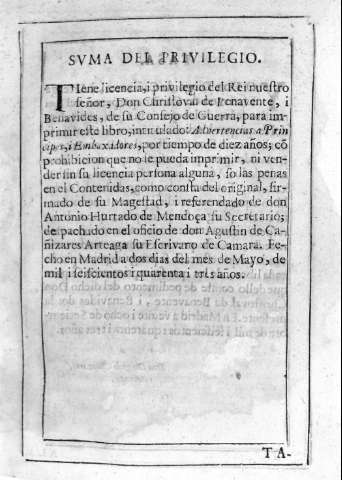 SVMA DEL PRIVILEGIO.
TIene licencia, i privilegio del Rei nuestro
señor, Don Christoval de Benavente, i
Benavides, de su Consejo de Guerra, para im
primir este libro, intitulado: Advertencias a Prin
cipes, i Embaxadores, por tiempo de diez años; cõ
prohibicion que no le pueda imprimir, ni ven-
der sin su licencia persona alguna, so las penas
en el Contenidas, como consta del original, fir-
mado de su Magestad, i referendado de don
Antonio Hurtado de Mendoça su Secretario;
despachado en el oficio de don Agustin de Ca-
ñizares Arteaga su Escrivano de Camara. Fe-
cho en Madrid a dos dias del mes de Mayo, de
mil i seiscientos i quarenta i tres años.
TA-